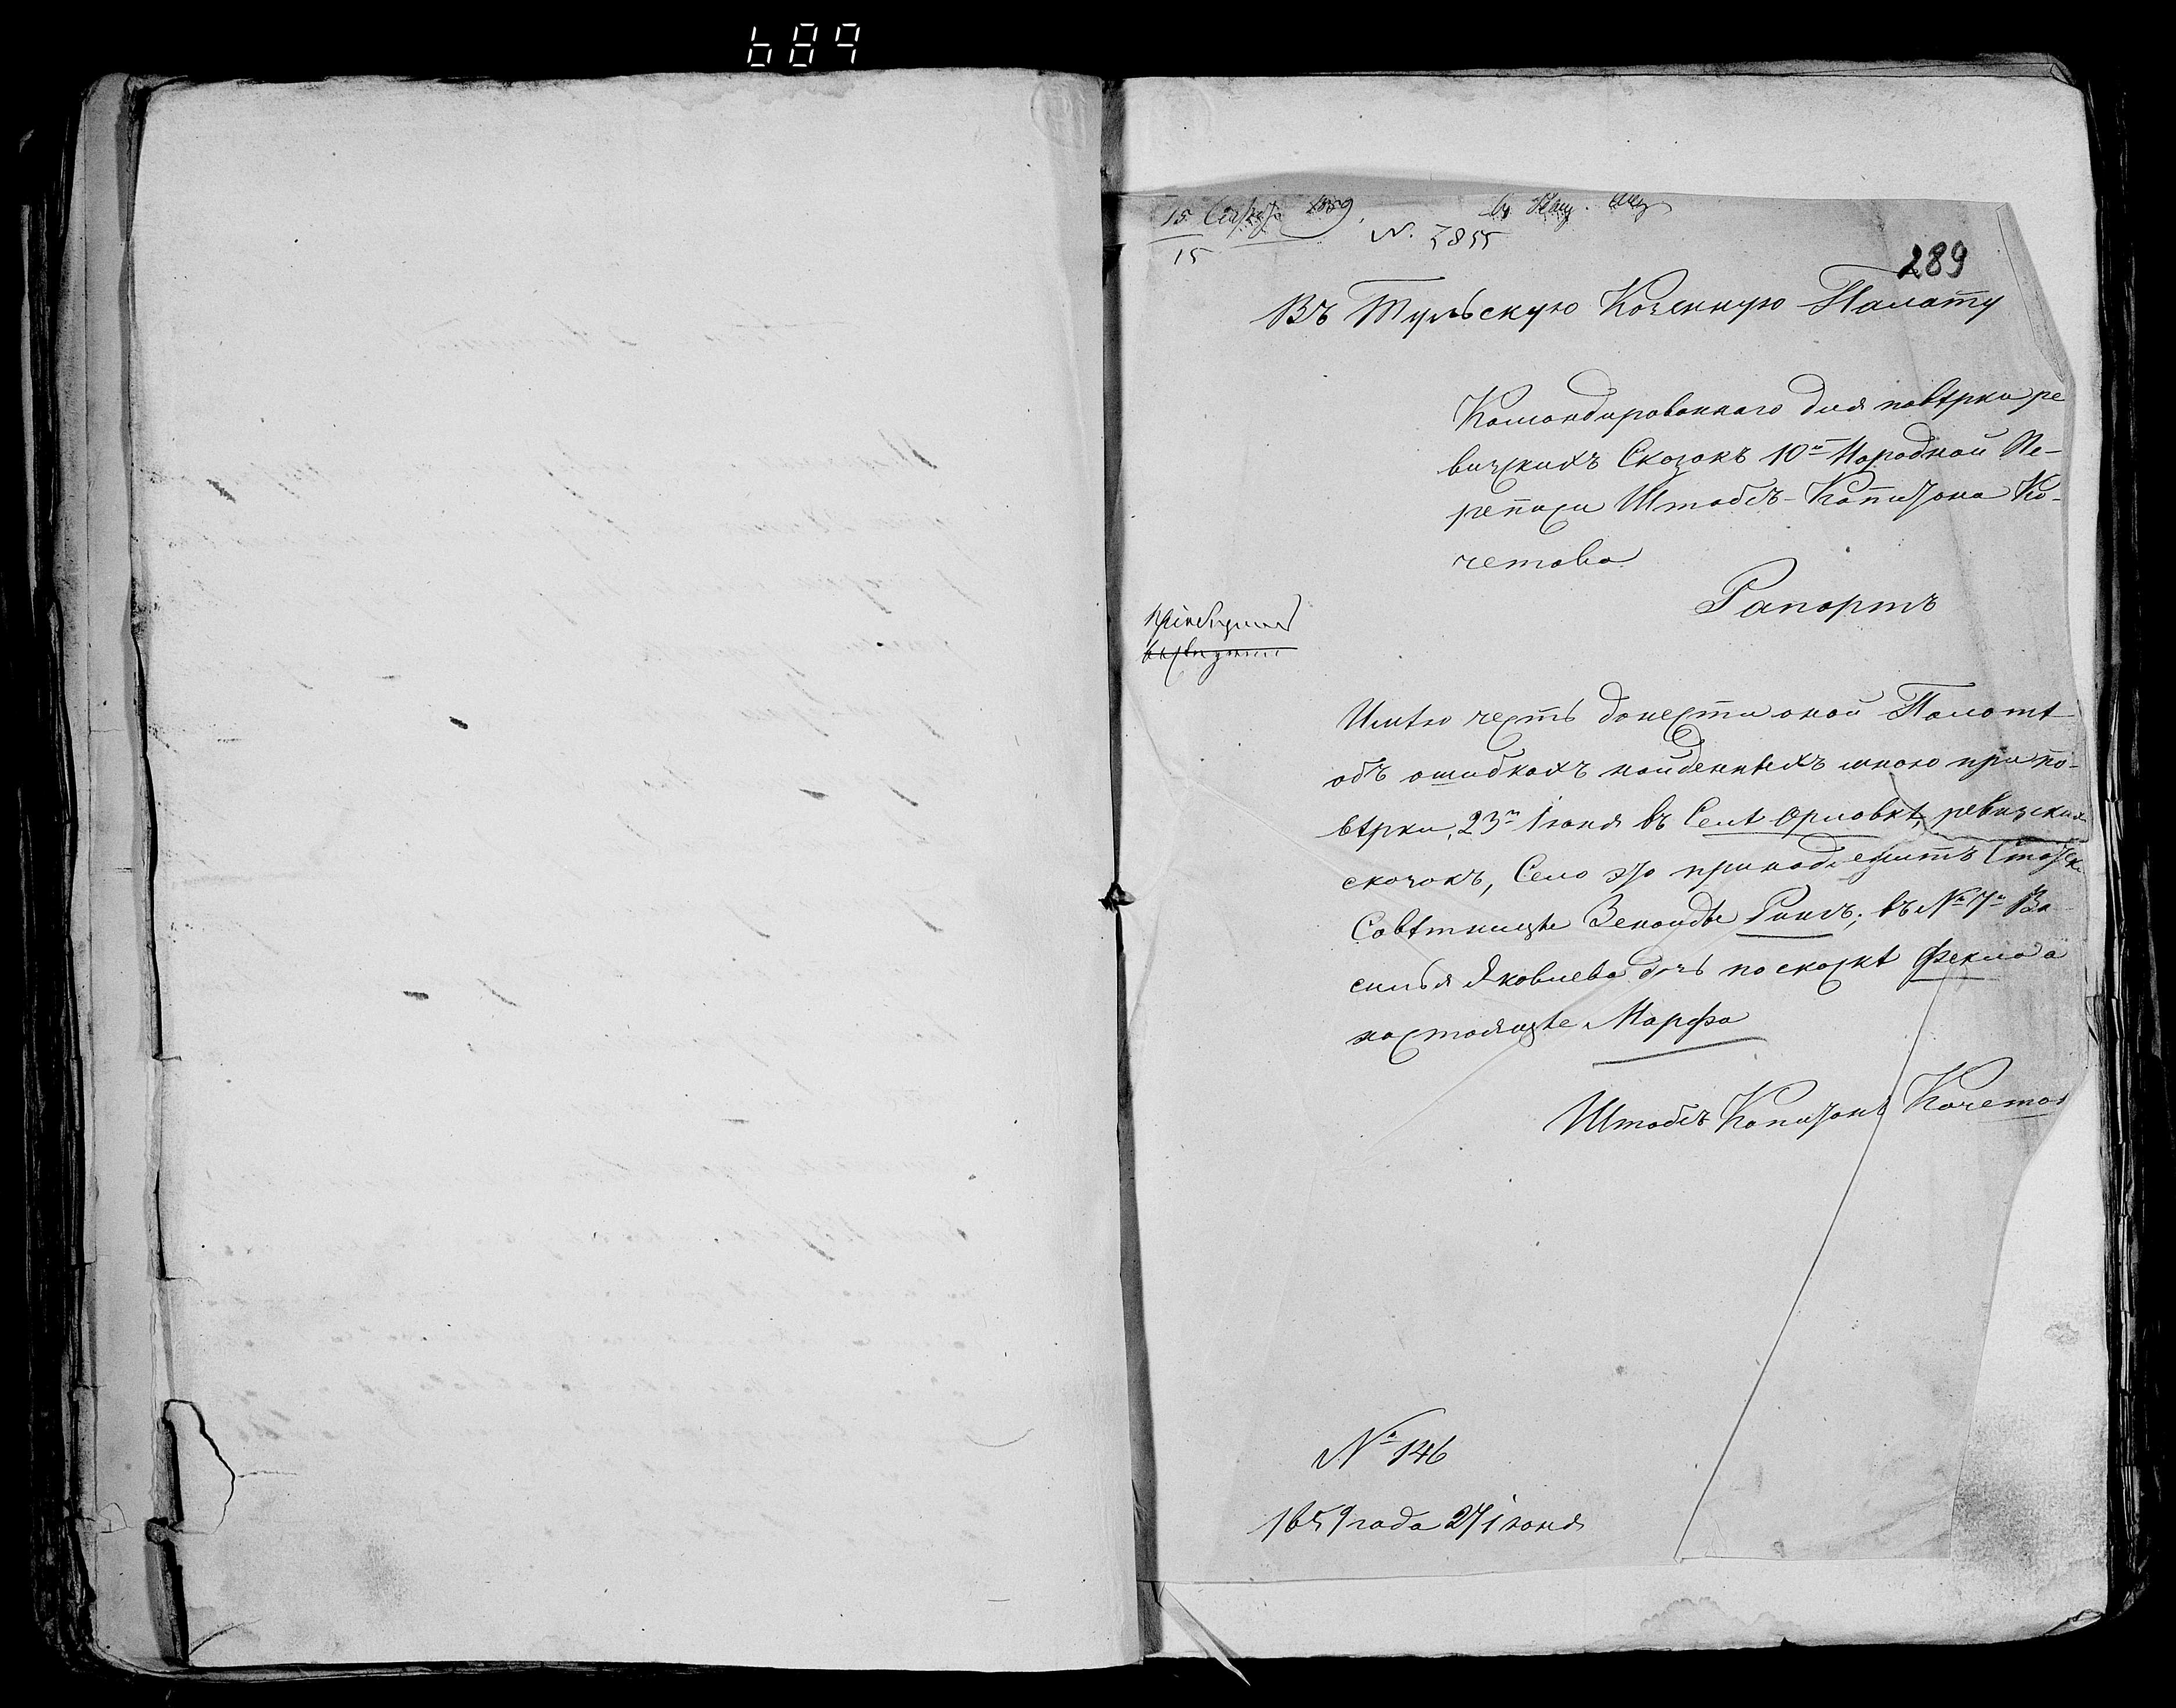 689
15 1859
15
N. 2855
289
Въ Тульскую Козенную Палату
Командированнаго для повѣрки ре
визскихъ Сказокъ 10й Народной Пе-
реписи Штабсъ-Капитона Ко-
четова
Рапортъ
Имѣю честь донести оной Палатѣ
объ ошибкахъ найденныхъ мною при по-
вѣрки, 23го Іюня въ Селѣ Орловкѣ, ревизских
сказокъ, Село это принадлежитъ Статск
Совѣтницѣ Зенаидѣ Ринъ; въ № 17м Ва
силья Яковлева дочь по сказкѣ Фекла а
настоящѣе Марфа
Штабсъ Капитонъ Кочетов
№ 146
1859 года 27 іюня